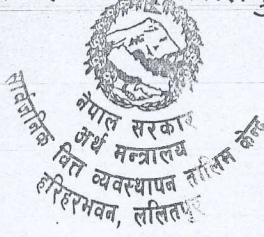 नेपाल सरकार
अर्थ मन्त्रालय
सार्वजनिक वित्त व्यवस्थापन तालिम केन्द्र
हरिहरभवन, ललितपुर